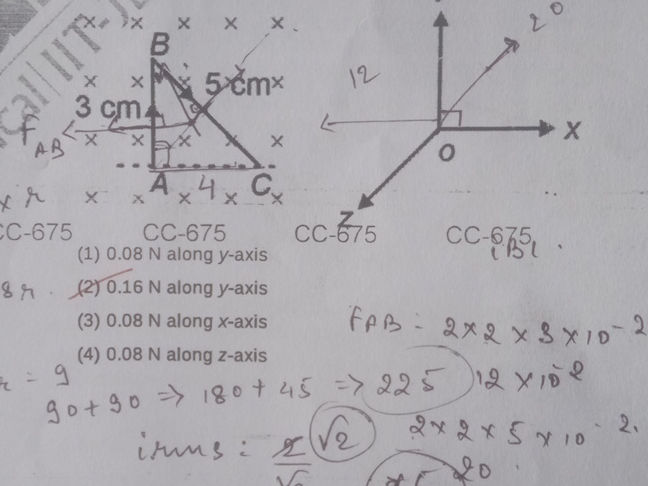 B
5 cm
3 cm
F AB
A 4 C
12
20
X
O
Z
CC-675 CC-675 CC-675 CC-675
(1) 0.08 N along y-axis
(2) 0.16 N along y-axis
(3) 0.08 N along x-axis
(4) 0.08 N along z-axis
iBl.
8r.
FAB = 2×2×3×10⁻²
12×10⁻²
= 9
90+90 => 180+45 => 225
2×2×5×10⁻²
irms = √2
20